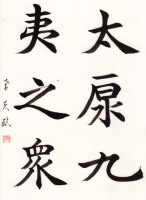 太原九
夷之衆